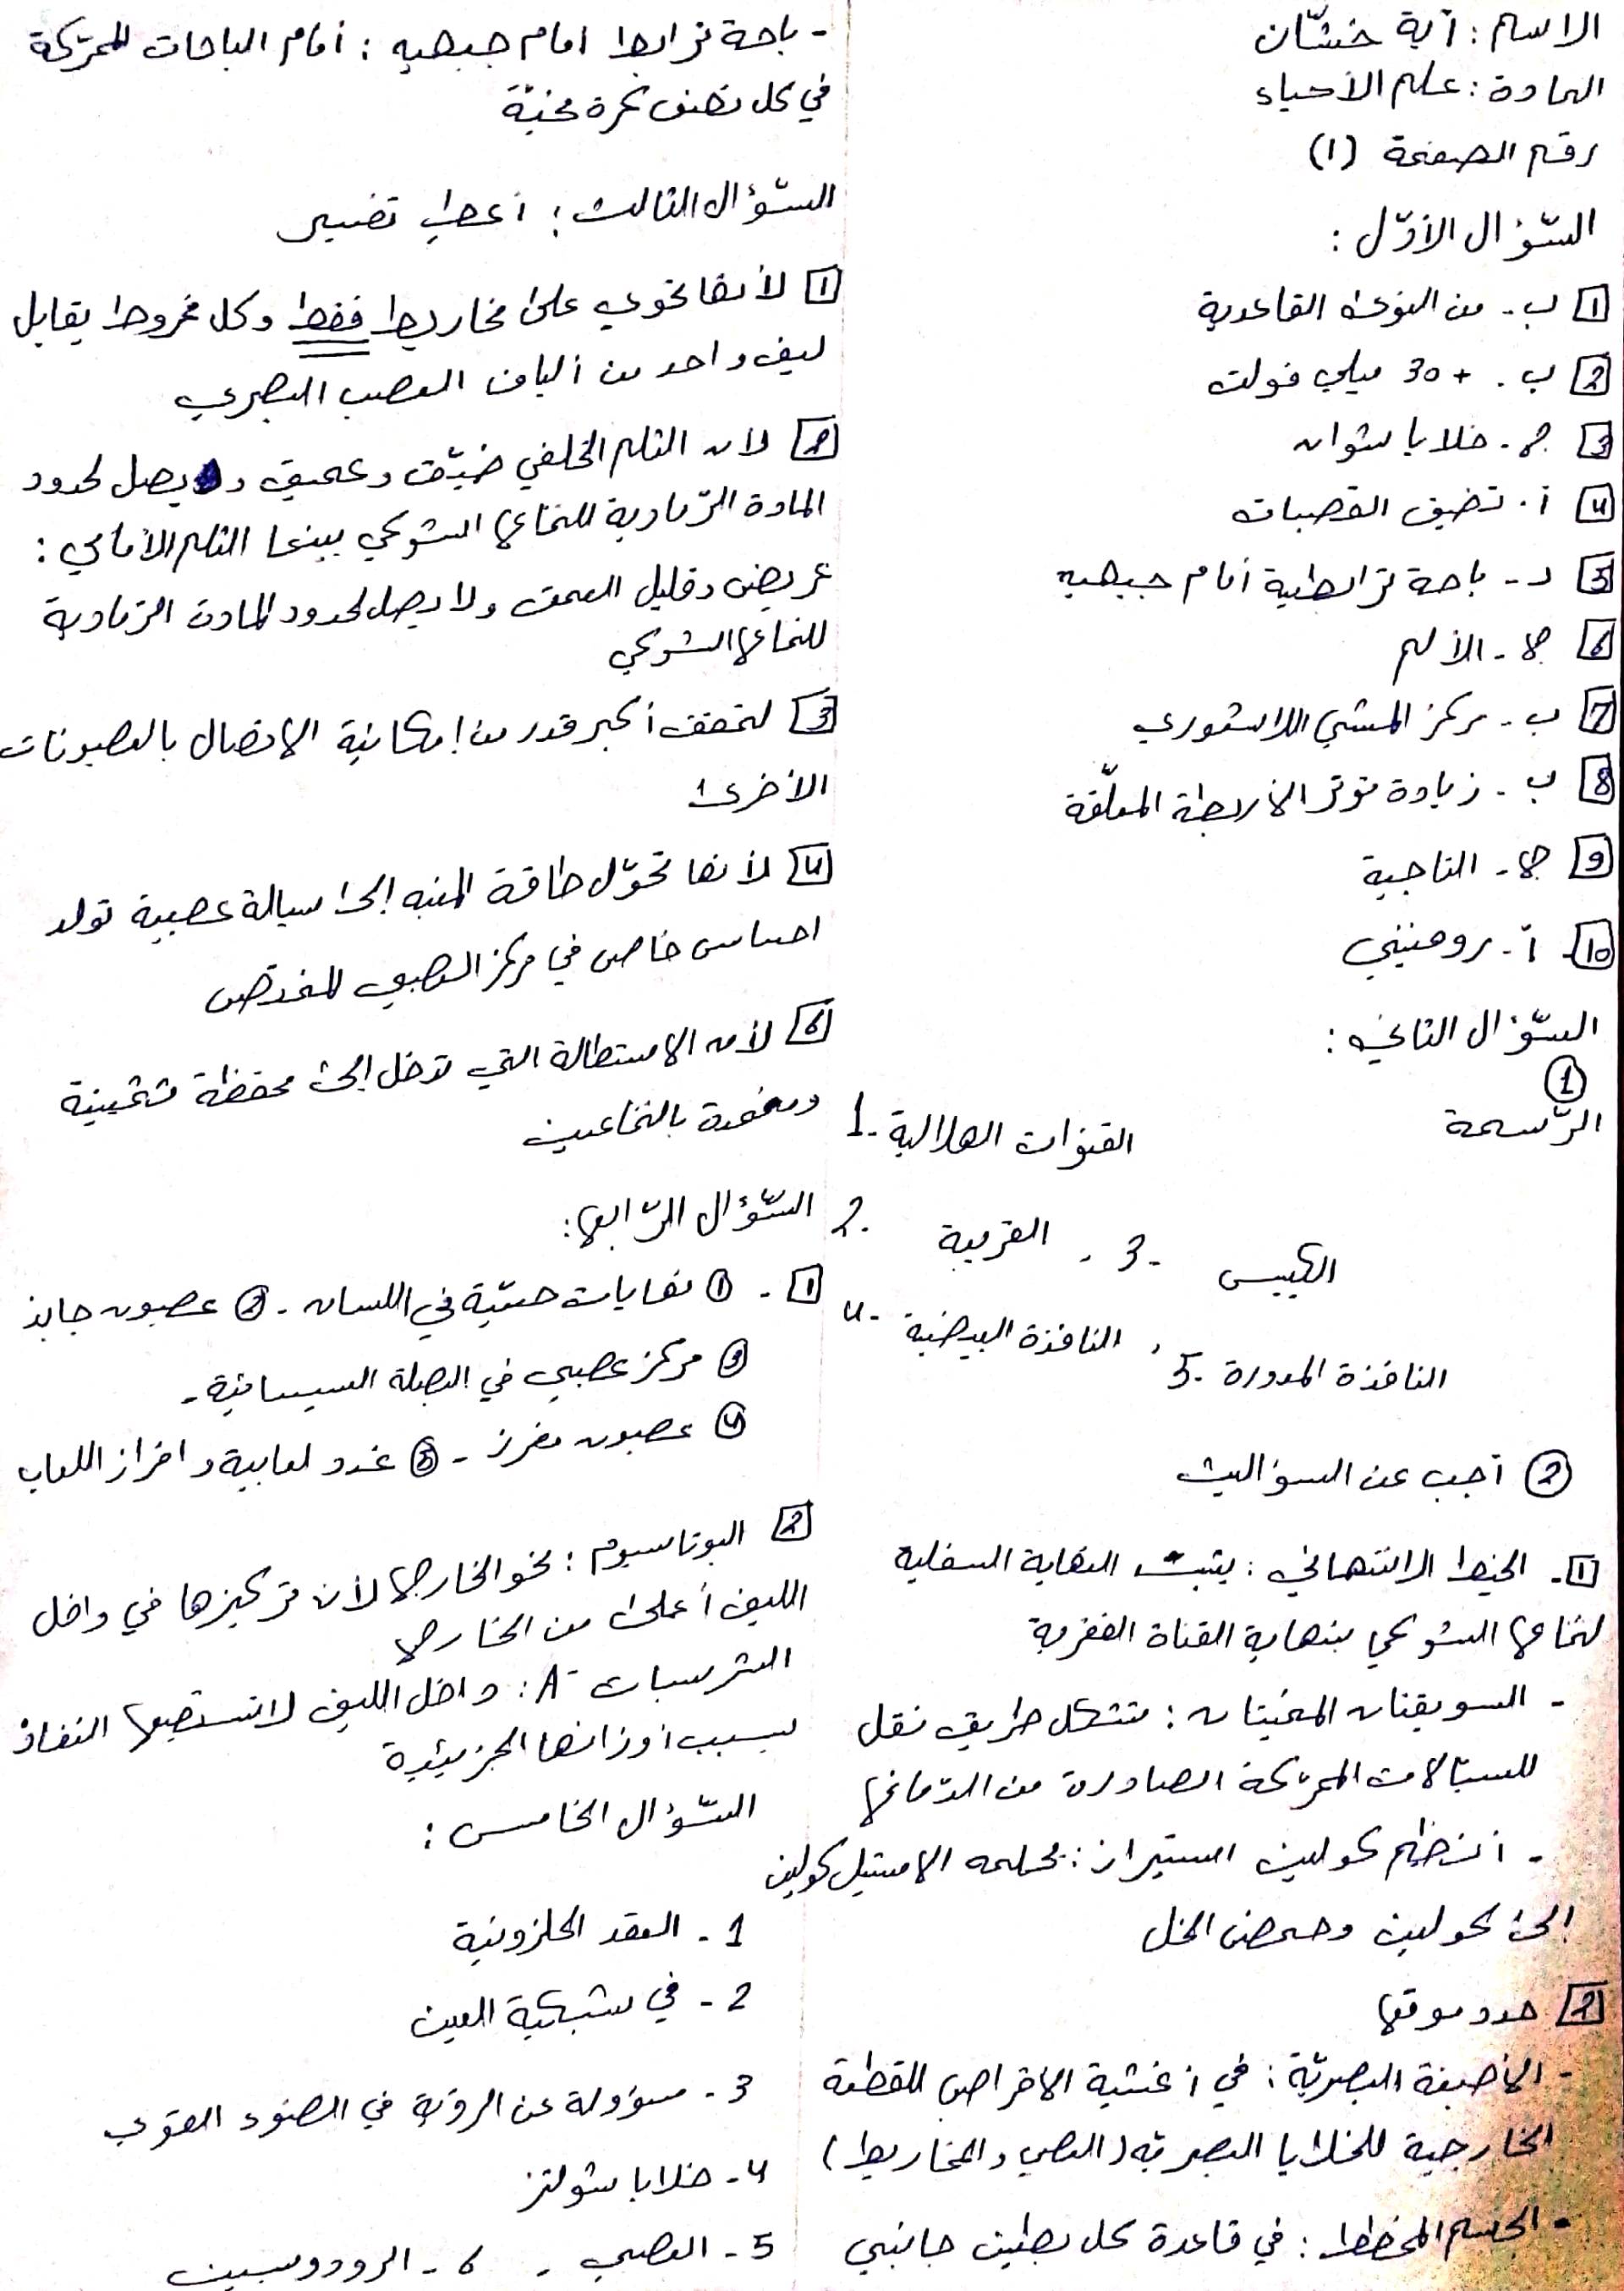 الاسم : آية خشّان
المادة : علم الأحياء
رقم الصفحة (1)
السّؤال الأوّل :
1 ب - من النوى القاعدية
2 ب . +30 ميلي فولت
3 ج - خلايا شوان
4 أ . تضيق القصبات
5 د - باحة ترابطية أمام جبهية
6 ج - الألم
7 ب - مركز المشي اللاشعوري
8 ب - زيادة توتر الأربطة المعلّقة
9 ج - التاجية
10 أ - رومنيني
السّؤال الثاني :
1
الرّسمة
1 - القنوات الهلالية
2 . القريبة . 3 - الكييس
4 - النافذة البيضية , 5 - النافذة المدورة
2 أجب عن السؤالين
1 - الخيط الانتهائي : يثبت النهاية السفلية
لنخاع الشوكي بنهاية القناة الفقرية
- السويقتان المخيتان : تتشكل طريق نقل
للسيّالات المحرّكة الصادرة من الدّماغ
- أنظيم كولين استيراز : يحلمه الاستيل كولين
إلى كولين وحمض الخل
2 حدد موقع
- الأصبغة البصريّة : في أغشية الاقراص للقطعة
الخارجية للخلايا البصريّة (العصي والمخاريط)
- الجسم المخطط : في قاعدة كل بطين جانبي
- باحة ترابط امام جبهيه : أمام الباحات المحرّكة
في كل نصف كرة مخيّة
السّؤال الثالث : أعطِ تفسير
1 لأنها تحوي على مخاريط فقط وكل مخروط يقابل
ليف واحد من ألياف العصب البصري
2 لأن الثلم الخلفي ضيّق وعميق و يصل لحدود
المادة الرّمادية للنخاع الشوكي بينما الثلم الأمامي :
عريض وقليل العمق ولا يصل لحدود المادة الرّمادية
للنخاع الشوكي
3 لتحقق أكبر قدر من إمكانية الاتصال بالعصبونات
الأخرى
4 لأنها تحوّل طاقة المنبه إلى سيالة عصبية تولد
احساس خاص في مركز العصبي المختص
6 لأن الاستطالة التي تدخل إلى محفظة تثخينية
ومغمدة بالنخاعين
السّؤال الرّابع :
1 - 1 نهايات حسّيّة في اللسان - 2 عصبون جابذ
3 مركز عصبي في البصلة السيسائية -
4 عصبون مفرز - 5 غدد لعابية وافراز اللعاب
2 البوتاسيوم : نحو الخارج لأن تركيزها في داخل
الليف أعلى من الخارج
الشرسبات A⁻ : داخل الليف لا تستطيع النفاذ
بسبب أوزانها الجزيئية
السّؤال الخامس :
1 - العقد الحلزونية
2 - في شبكية العين
3 - مسؤولة عن الرؤية في الضوء القوي
4 - خلايا شولتز
5 - العصي - 6 - الرودوبسين